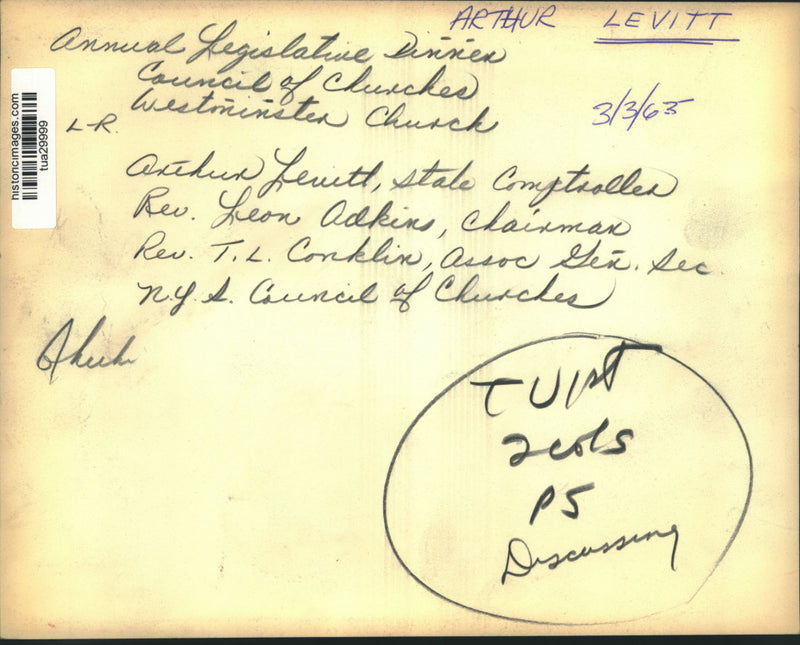 ARTHUR LEVITT
3/3/65
Annual Legislative Dinner
Council of Churches
Westminster Church
L-R.
Arthur Levitt, State Comptroller
Rev. Leon Adkins, Chairman
Rev. T. L. Conklin, Assoc Gen. Sec.
N.Y.S. Council of Churches
TU 1st
2 cols
P5
Discussing
historicimages.com
tua29999